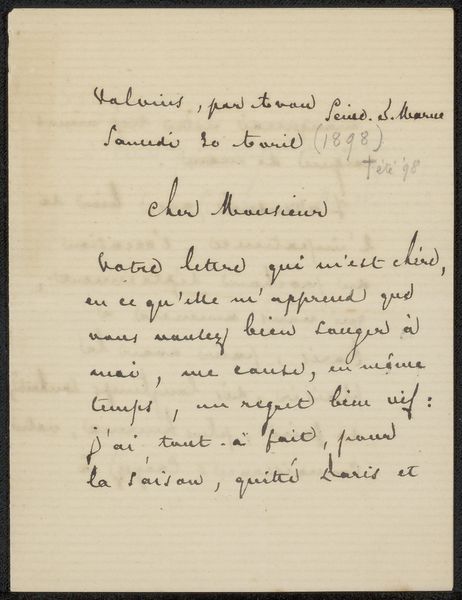 Valvins, par Avon Seine-&-Marne
Samedi 30 Avril (1898)
† été '98
Cher Monsieur
Votre lettre qui m'est chère,
en ce qu'elle m'apprend que
vous voulez bien songer à
moi, me cause, en même
temps, un regret bien vif:
j'ai tout-à fait, pour
la saison, quitté Paris et